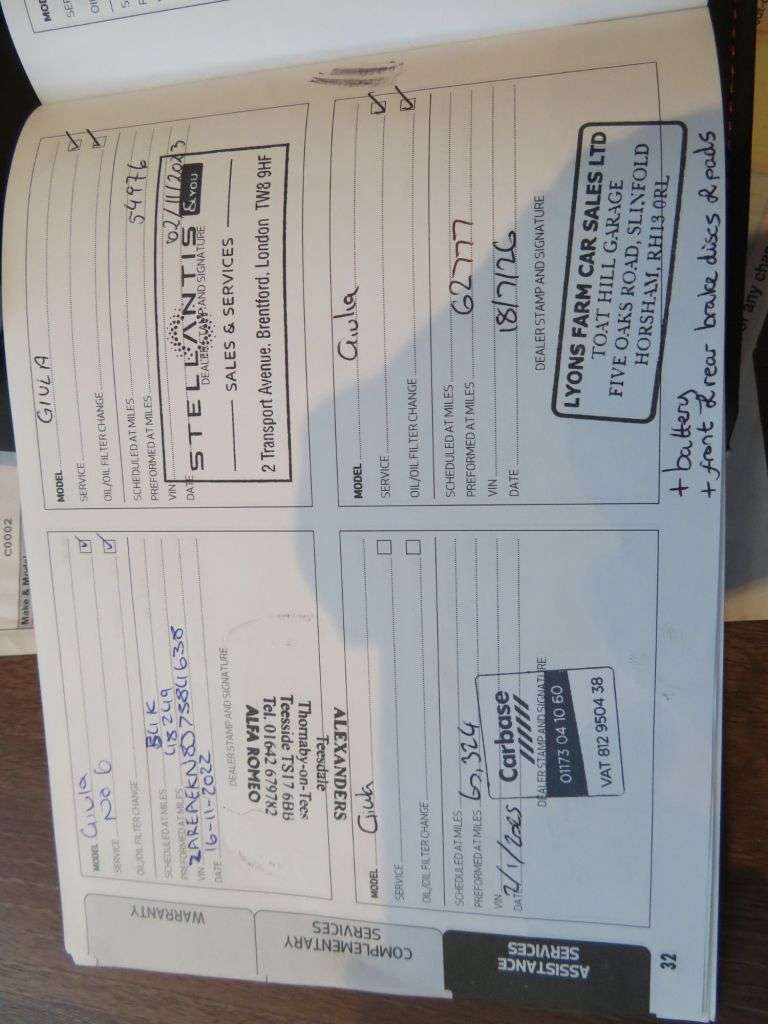 C0002
MODEL Giulia
SERVICE No 6
OIL/OIL FILTER CHANGE
SCHEDULED AT MILES
PREFORMED AT MILES 48249
VIN
DATE 16-11-2022
DEALER STAMP AND SIGNATURE
ALEXANDERS
Teesdale
Thornaby-on-Tees
Teesside TS17 6BB
Tel. 01642 679782
ALFA ROMEO
MODEL GIULA
SERVICE
OIL/OIL FILTER CHANGE
SCHEDULED AT MILES 54976
PREFORMED AT MILES
VIN 02/11/2023
DATE
DEALER STAMP AND SIGNATURE
STELLANTIS &YOU
SALES & SERVICES
2 Transport Avenue, Brentford, London TW8 9HF
MODEL
SERVICE
OIL/OIL FILTER CHANGE
SCHEDULED AT MILES
PREFORMED AT MILES
VIN
DATE 2/1/2025
DEALER STAMP AND SIGNATURE
Carbase
01173 04 10 60
VAT 812 9504 38
MODEL Giulia
SERVICE
OIL/OIL FILTER CHANGE
SCHEDULED AT MILES
PREFORMED AT MILES 62777
VIN
DATE 18/7/26
DEALER STAMP AND SIGNATURE
LYONS FARM CAR SALES LTD
TOAT HILL GARAGE
FIVE OAKS ROAD, SLINFOLD
HORSHAM, RH13 0RL
+ battery
+ front & rear brake discs & pads
WARRANTY
COMPLEMENTARY
SERVICES
ASSISTANCE
SERVICES
32